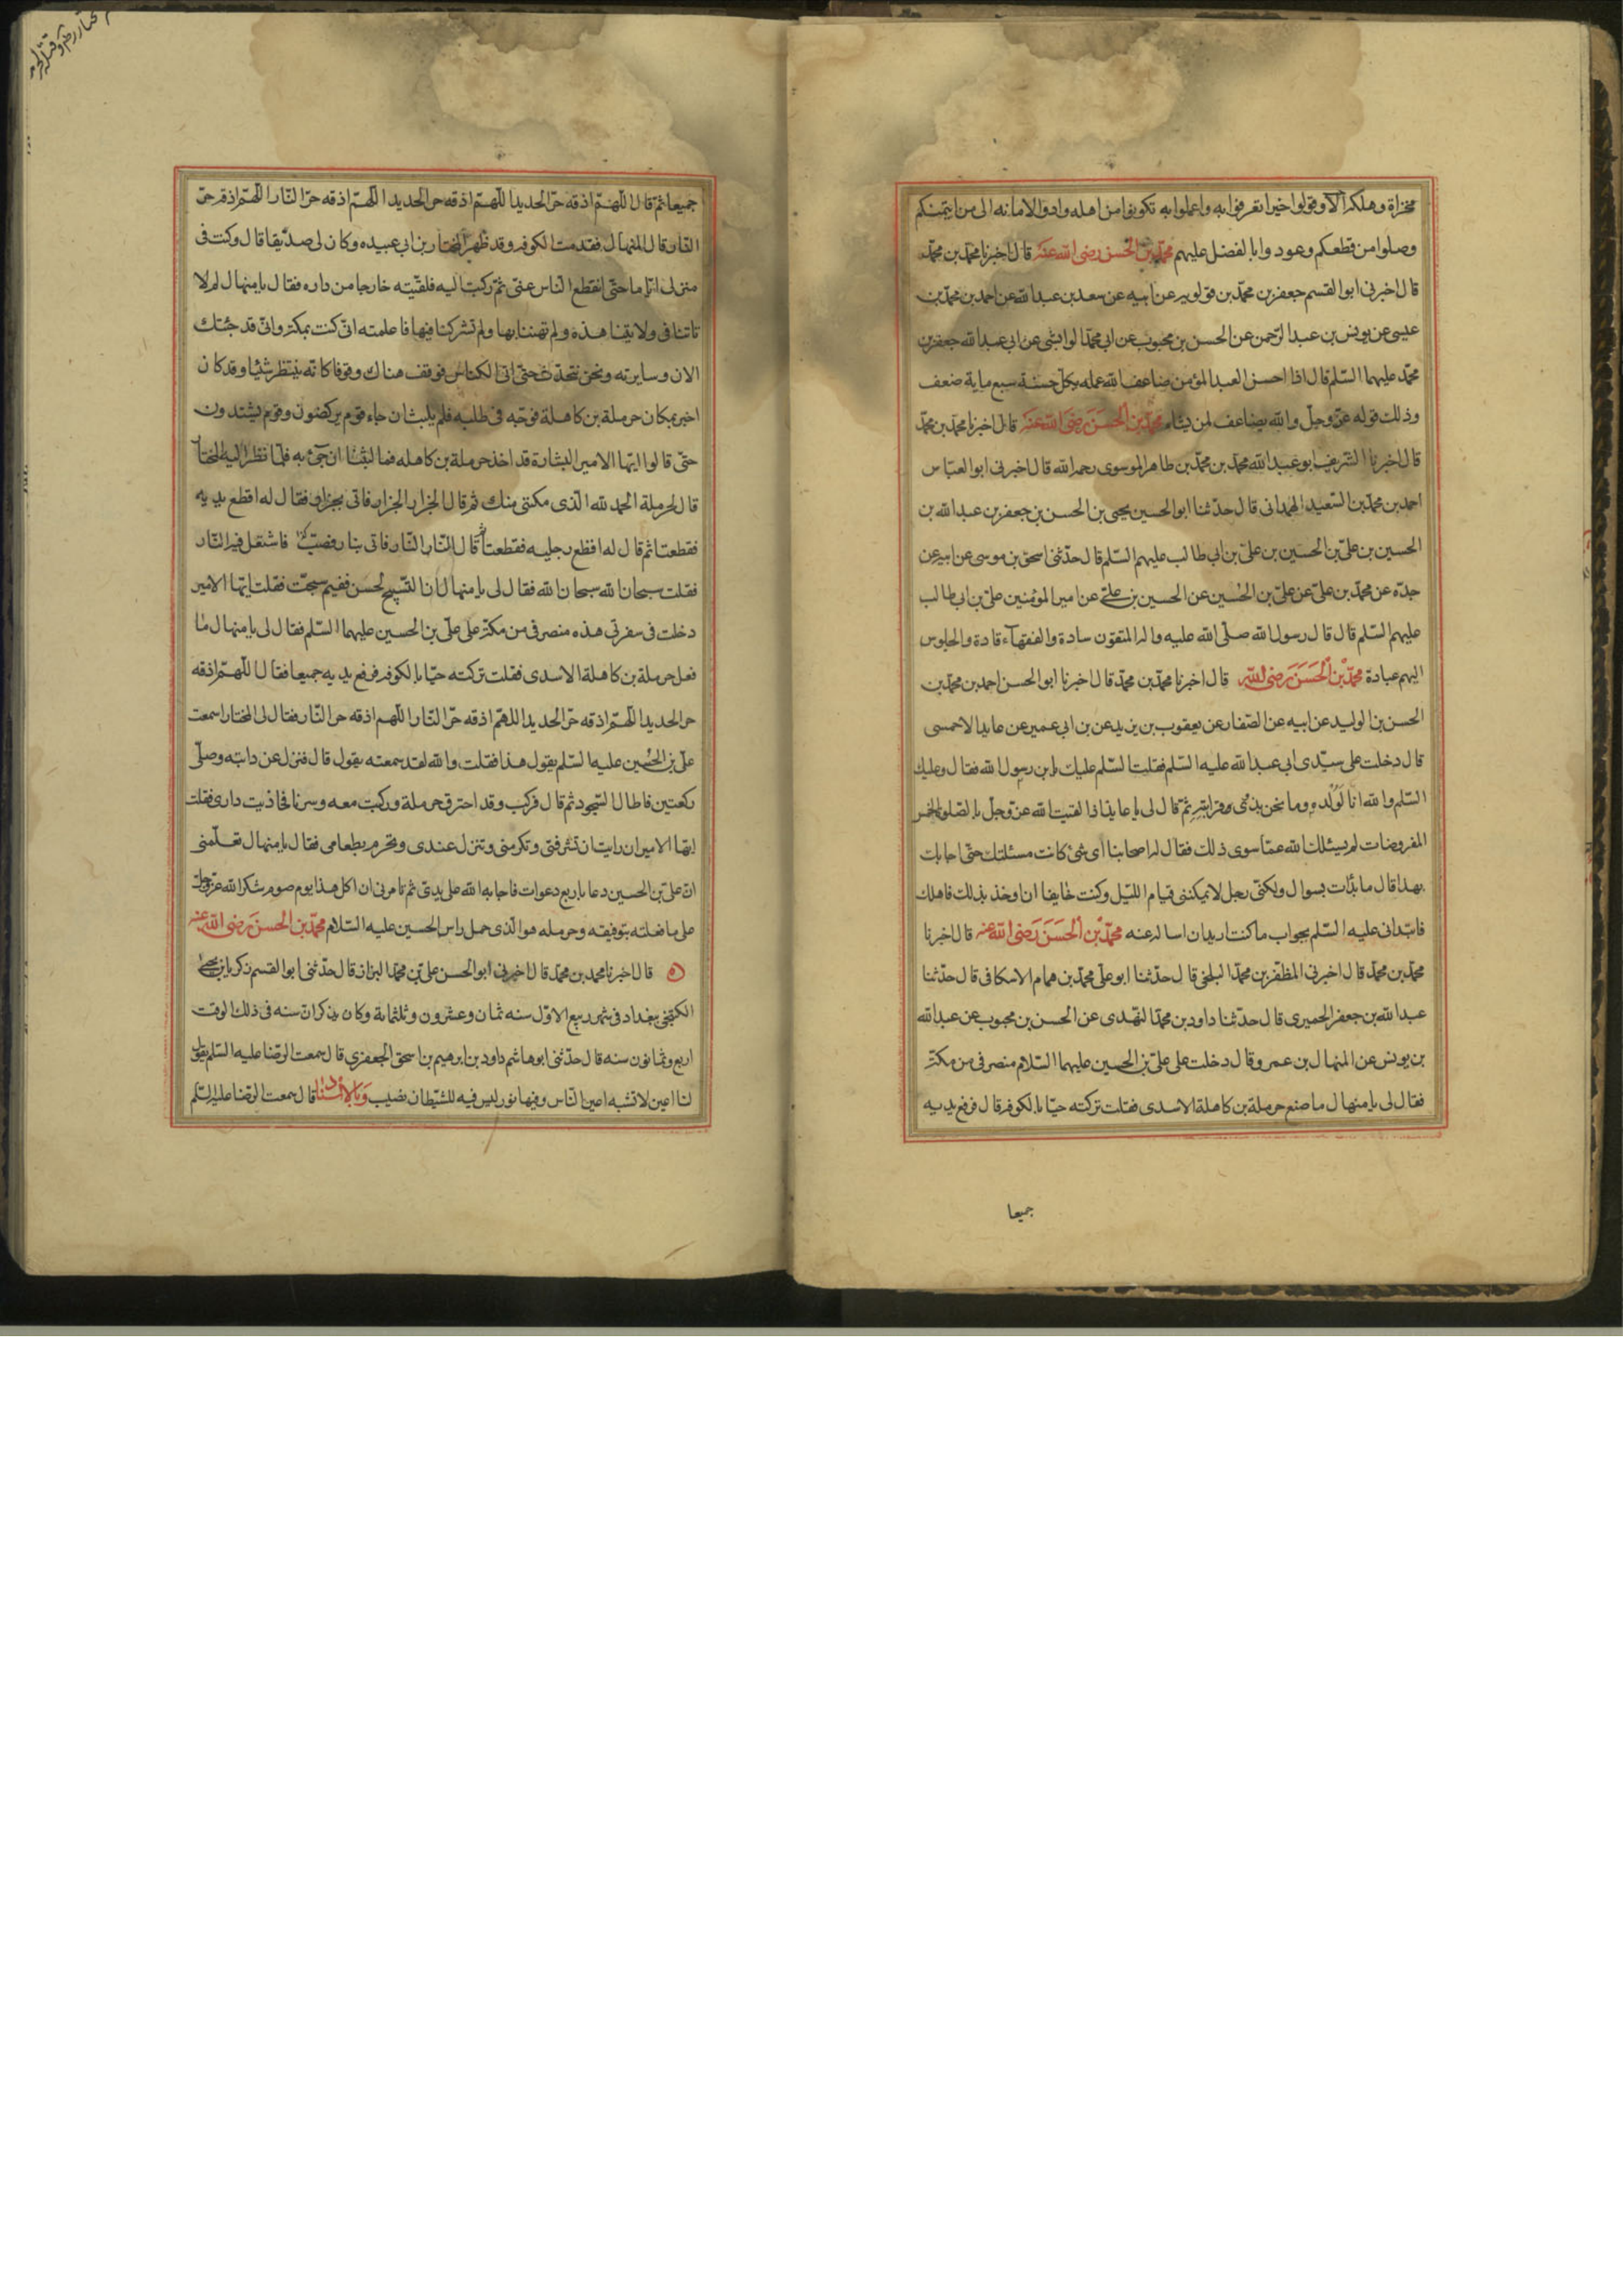 مخزاة ومهلكة ألا وقولوا خيرا تعرفوا به واعملوا به تكونوا من اهله وادوا الامانة الى من ايتمنكم
وصلوا من قطعكم وعودوا بالفضل عليهم محمّد بن الحسن رضى الله عنه قال اخبرنا محمّد بن محمّد
قال اخبرنى ابو القسم جعفر بن محمّد بن قولويه عن ابيه عن سعد بن عبد الله عن احمد بن محمّد بن
عيسى عن يونس بن عبد الرّحمن عن الحسن بن محبوب عن ابى محمّد الوابشى عن ابى عبد الله جعفر بن
محمّد عليهما السّلم قال اذا احسن العبد المؤمن ضاعف الله عمله بكلّ حسنة سبع ماية ضعف
وذلك قوله عزّ وجلّ والله يضاعف لمن يشاء محمّد بن الحسن رضى الله عنه قال اخبرنا محمّد بن محمّد
قال اخبرنا الشريف ابو عبد الله محمّد بن محمّد بن طاهر الموسوى رحمه الله قال اخبرنى ابو العبّاس
احمد بن محمّد بن السّعيد الهمدانى قال حدّثنا ابو الحسين يحيى بن الحسن بن جعفر بن عبد الله بن
الحسين بن علىّ بن الحسين بن علىّ بن ابى طالب عليهم السّلم قال حدّثنى اسحق بن موسى عن ابيه عن
جدّه عن محمّد بن علىّ عن علىّ بن الحسين عن الحسين بن علىّ عن امير المؤمنين علىّ بن ابى طالب
عليهم السّلم قال قال رسول الله صلّى الله عليه واله المتقون سادة والفقهاء قادة والجلوس
اليهم عبادة محمّد بن الحسن رضى الله قال اخبرنا محمّد بن محمّد قال اخبرنا ابو الحسن احمد بن محمّد بن
الحسن بن الوليد عن ابيه عن الصّفار عن يعقوب بن يزيد عن بن ابى عمير عن عايذ الاحمسى
قال دخلت على سيّدى ابى عبد الله عليه السّلم فقلت السّلم عليك يا بن رسول الله فقال وعليك
السّلم والله انا لولده وما نحن بذوى قرابته ثمّ قال لى يا عايذ اذا لقيت الله عزّ وجلّ بالصّلوات الخمس
المفروضات لم يسئلك الله عمّا سوى ذلك فقال له اصحابنا اى شئ كانت مسئلتك حتّى اجابك
بهذا قال ما بدأت بسوال ولكنّى رجل لا يمكننى قيام اللّيل وكنت خايفا ان اوخذ بذلك فاهلك
فابتدانى عليه السّلم بجواب ما كنت اريد ان اساله عنه محمّد بن الحسن رضى الله عنه قال اخبرنا
محمّد بن محمّد قال اخبرنى المظفّر بن محمّد البلخى قال حدّثنا ابو علىّ محمّد بن همام الاسكافى قال حدّثنا
عبد الله بن جعفر الحميرى قال حدّثنا داود بن محمّد النهدى عن الحسن بن محبوب عن عبد الله
بن يونس عن المنهال بن عمرو قال دخلت على علىّ بن الحسين عليهما السّلام منصرفى من مكّة
فقال لى يا منهال ما صنع حرملة بن كاهلة الاسدى فقلت تركته حيّا بالكوفه قال فرفع يديه
جميعا
جميعا ثمّ قال اللّهمّ اذقه حرّ الحديد اللّهمّ اذقه حرّ الحديد اللّهمّ اذقه حرّ النّار اللّهمّ اذقه حرّ
النّار قال المنهال فقدمت الكوفه وقد ظهر المختار بن ابى عبيده وكان لى صدّيقا قال وكنت فى
منزلى ايّاما حتّى انقطع النّاس عنّى ثمّ ركبت اليه فلقيته خارجا من داره فقال يا منهال لم لا
تاتنا فى ولايتنا هذه ولم تهننا بها ولم تشركنا فيها فاعلمته انّى كنت بمكّة وانّى قد جئتك
الان وسايرته ونحن نتحدّث حتّى اتى الكناس فوقف هناك وقوفا كانّه ينتظر شيئا وقد كان
اخبر بمكان حرملة بن كاهلة فوجّه فى طلبه فلم يلبث ان جاء قوم يركضون وقوم يشتدون
حتّى قالوا ايّها الامير البشارة قد اخذ حرملة بن كاهله فما لبثنا ان جئ به فلمّا نظر اليه المختار
قال لحرملة الحمد لله الّذى مكنّى منك ثم قال الجزار الجزار فاتى بجزار فقال له اقطع يديه
فقطعتا ثم قال له اقطع رجليه فقطعتا ثم قال النّار النّار فاتى بنار وقصب فاشتعل فيه النّار
فقلت سبحان الله سبحان الله فقال لى يا منهال ان التّسبيح لحسن ففيم سبحت فقلت ايّها الامير
دخلت فى سفرتى هذه منصرفى من مكّة على علىّ بن الحسين عليهما السّلم فقال لى يا منهال ما
فعل حرملة بن كاهلة الاسدى فقلت تركته حيّا بالكوفه فرفع يديه جميعا فقال اللّهمّ اذقه
حر الحديد اللّهمّ اذقه حرّ الحديد اللهمّ اذقه حرّ النّار اللّهم اذقه حر النّار فقال لى المختار اسمعت
علىّ بن الحسين عليه السّلم يقول هذا فقلت والله لقد سمعته يقول قال فنزل عن دابّته وصلّى
ركعتين فاطال السّجود ثم قال فركب وقد احترق حرملة وركبت معه وسرنا فحاذيت دارى فقلت
ايّها الامير ان رايت ان تشرّفنى وتكرمنى وتنزل عندى وتحرم بطعامى فقال يا منهال تعلّمنى
انّ علىّ بن الحسين دعا باربع دعوات فاجابه الله على يدىّ ثم تامرنى ان اكل هذا يوم صوم شكرا لله عزّ وجلّ
على ما فعلته بتوفيقه وحرمله هو الّذى حمل راس الحسين عليه السّلام محمّد بن الحسن رضى الله عنه
قال اخبرنا محمد بن محمّد قال اخبرنى ابو الحسن علىّ بن محمّد البزاز قال حدّثنى ابو القسم زكريا بن يحيى
الكتنجى ببغداد فى شهر ربيع الاوّل سنه ثمان وعشرون وثلثماية وكان يذكر انّ سنه فى ذلك الوقت
اربع وثمانون سنه قال حدّثنى ابو هاشم داود بن ابرهيم بن اسحق الجعفرى قال سمعت الرّضا عليه السّلم يقول
لنا اعين لا تشبه اعين النّاس وفيها نور ليس فيه للشّيطان نصيب وبالاسناد قال سمعت الرّضا عليه السّلم